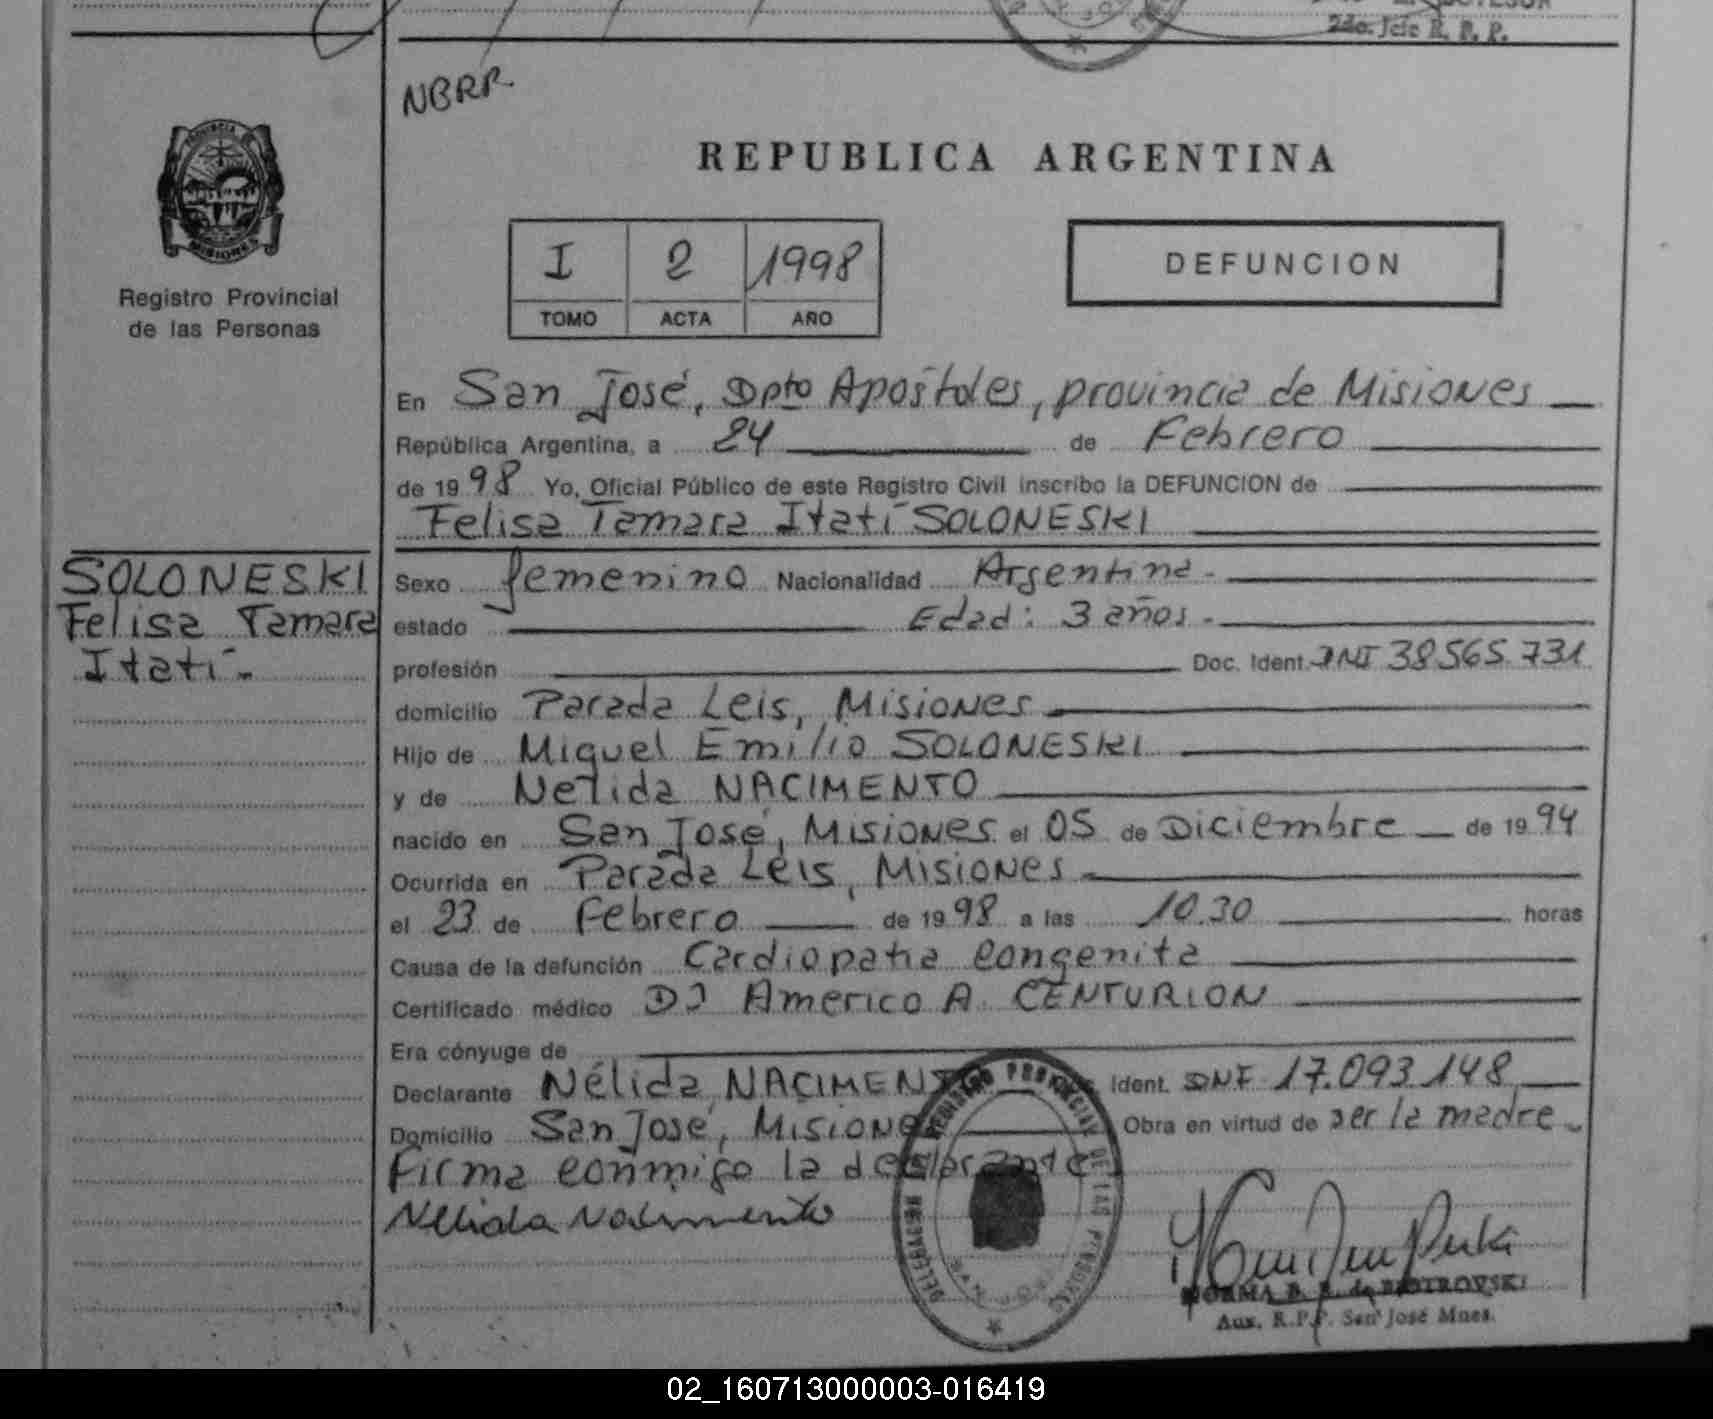 2do. Jefe R. P. P.
NBRR
PROVINCIA DE
MISIONES
Registro Provincial
de las Personas
REPUBLICA ARGENTINA
I 2 1998
TOMO ACTA AÑO
DEFUNCION
En San José, Dpto Apóstoles, provincia de Misiones
República Argentina, a 24 de Febrero
de 1998 Yo, Oficial Público de este Registro Civil inscribo la DEFUNCION de
Felisa Tamara Itatí SOLONESKI
SOLONESKI
Felisa Tamara
Itatí.-
Sexo femenino Nacionalidad Argentina.-
estado Edad: 3 años.-
profesión Doc. Ident. DNI 38565.731
domicilio Parada Leis, Misiones
Hijo de Miguel Emilio SOLONESKI
y de Nelida NACIMENTO
nacido en San José, Misiones el 05 de Diciembre de 1994
Ocurrida en Parada Leis, Misiones
el 23 de Febrero de 1998 a las 10.30 horas
Causa de la defunción Cardiopatia congenita
Certificado médico Dr Americo A. CENTURION
Era cónyuge de
Declarante Nélida NACIMENTO Ident. DNI 17.093.148
Domicilio San José, Misiones Obra en virtud de ser la madre.
Firma conmigo la declarante
Nelida Nacimento
REGISTRO PROVINCIAL DE LAS PERSONAS
NORMA B. R. de PIOTROVSKI
Aux. R.P.P. San José Mnes.
02_160713000003-016419